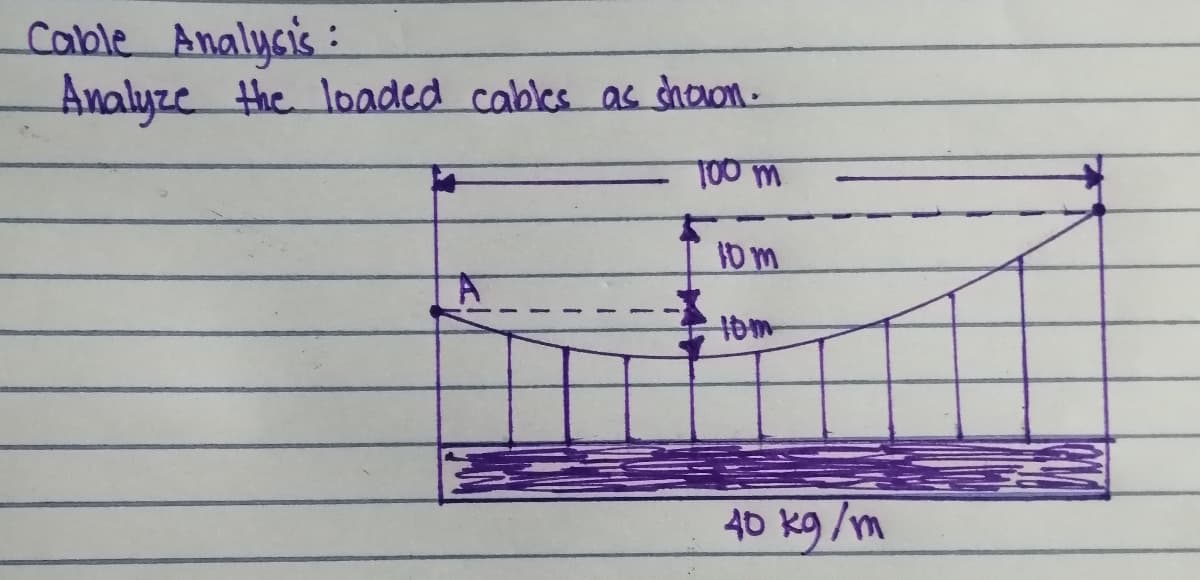 Cable Analysis:
Analyze the loaded cables as shown.
100 m
10 m
A
10 m
40 kg/m